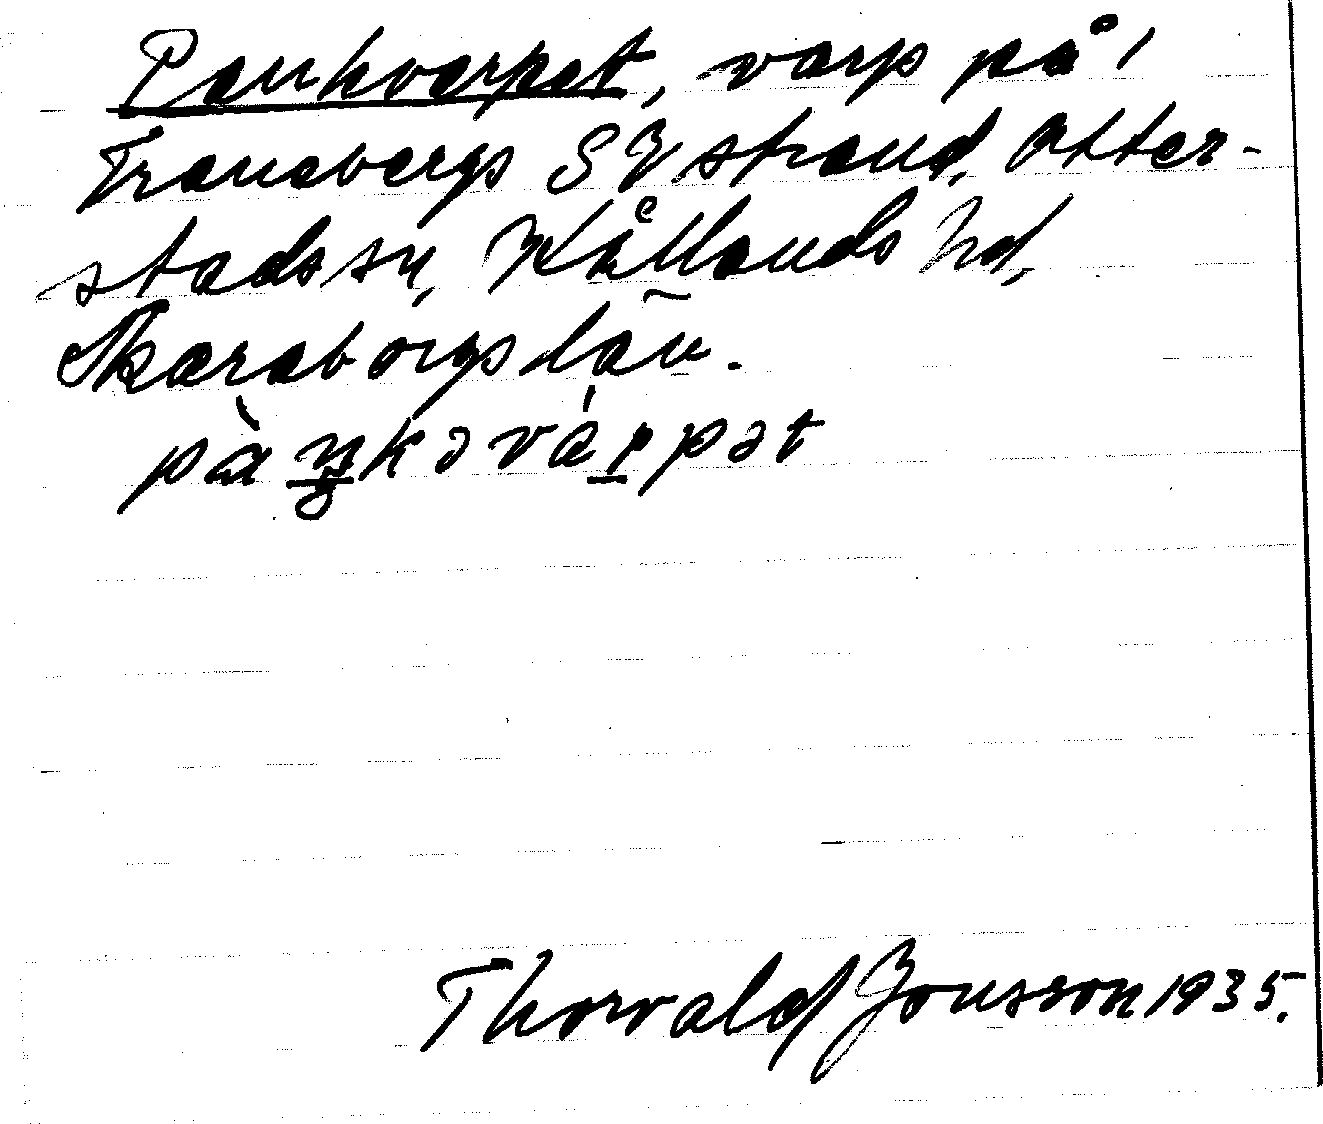 Pankvarpet, varp på i
Tranebergs SV strand, Otter-
stads sn, Kållands hd,
Skaraborgs län.
pàŋkəvárpət
Thorvald Jonsson 1935.